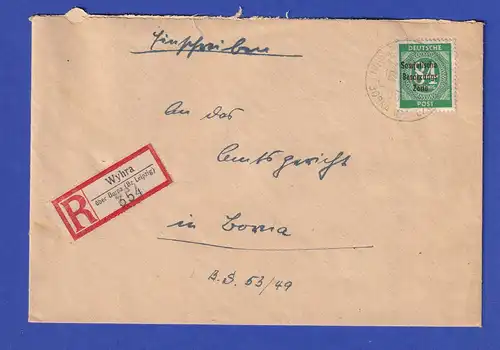 Einschreiben
DEUTSCHE
84
Sowjetische
Besatzungs
Zone
POST
An das
Amtsgericht
in Borna
B.S. 53/49
R
Wyhra
über Borna (Bz. Leipzig)
354